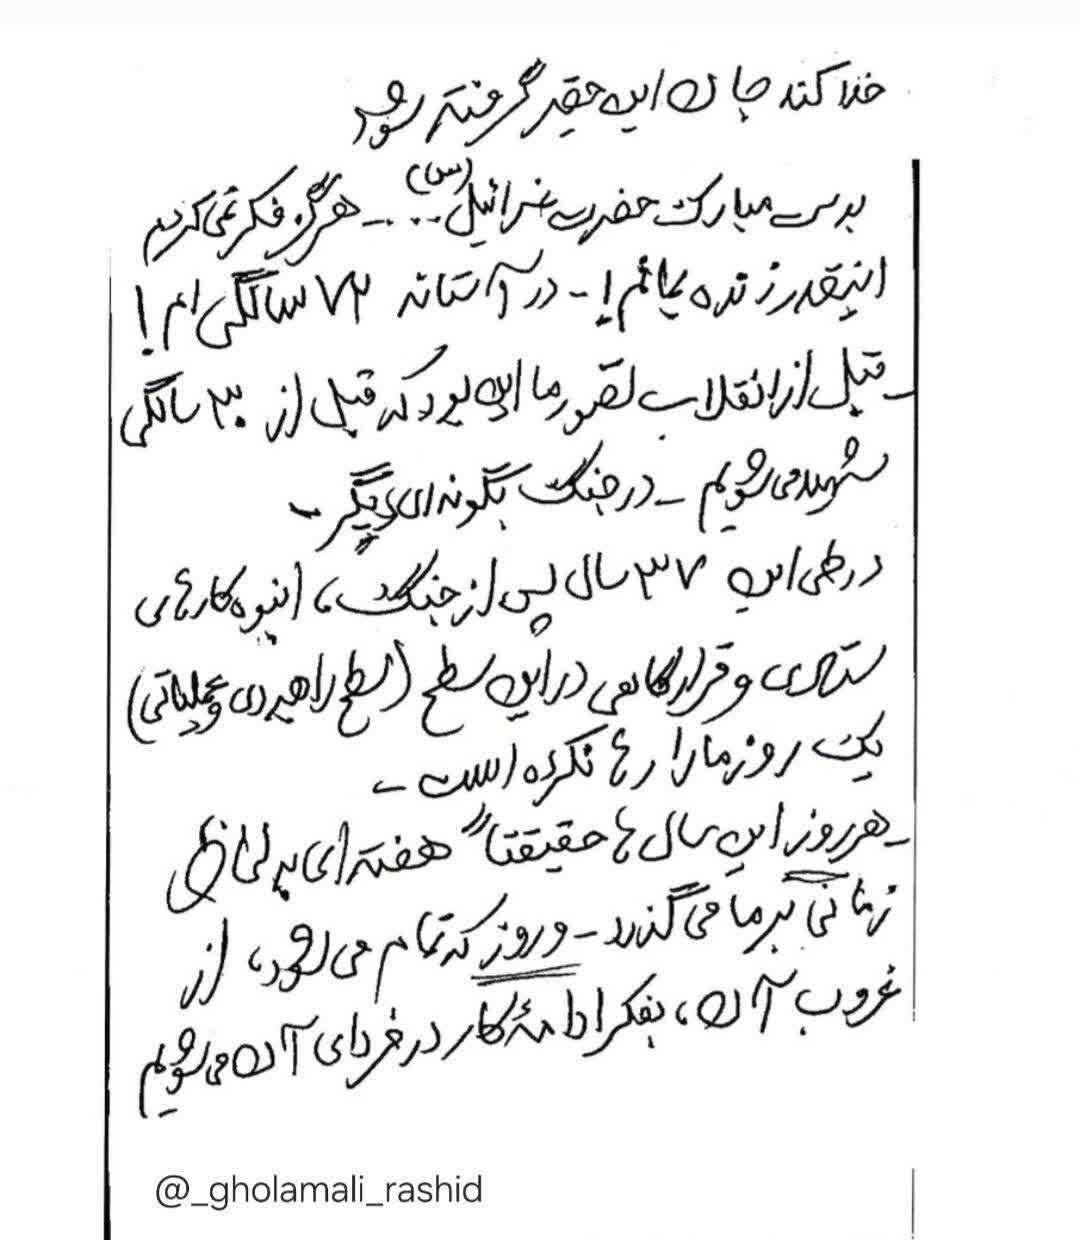 خدا کند جان این حقیر گرفته شود
بدست مبارک حضرت عزرائیل (س) ... - هرگز فکر نمی کردیم
اینقدر زنده بمانم! - در آستانه ۷۳ سالگی ام!
- قبل از انقلاب تصور ما این بود که قبل از ۳۰ سالگی
شهید می شویم - در جنگ بگونه ای دیگر -
در طی این ۳۷ سال پس از جنگ، انبوه کارهای
ستادی و قرارگاهی در این سطح (سطح راهبردی و عملیاتی)
یک روز ما را رها نکرده است -
- هر روز این سال ها حقیقتاً هفته ای به لحاظ
زمانی بر ما می گذرد - و روز که تمام می شود، از
غروب آن، بفکر ادامۀ کار در فردای آن می شویم
@_gholamali_rashid